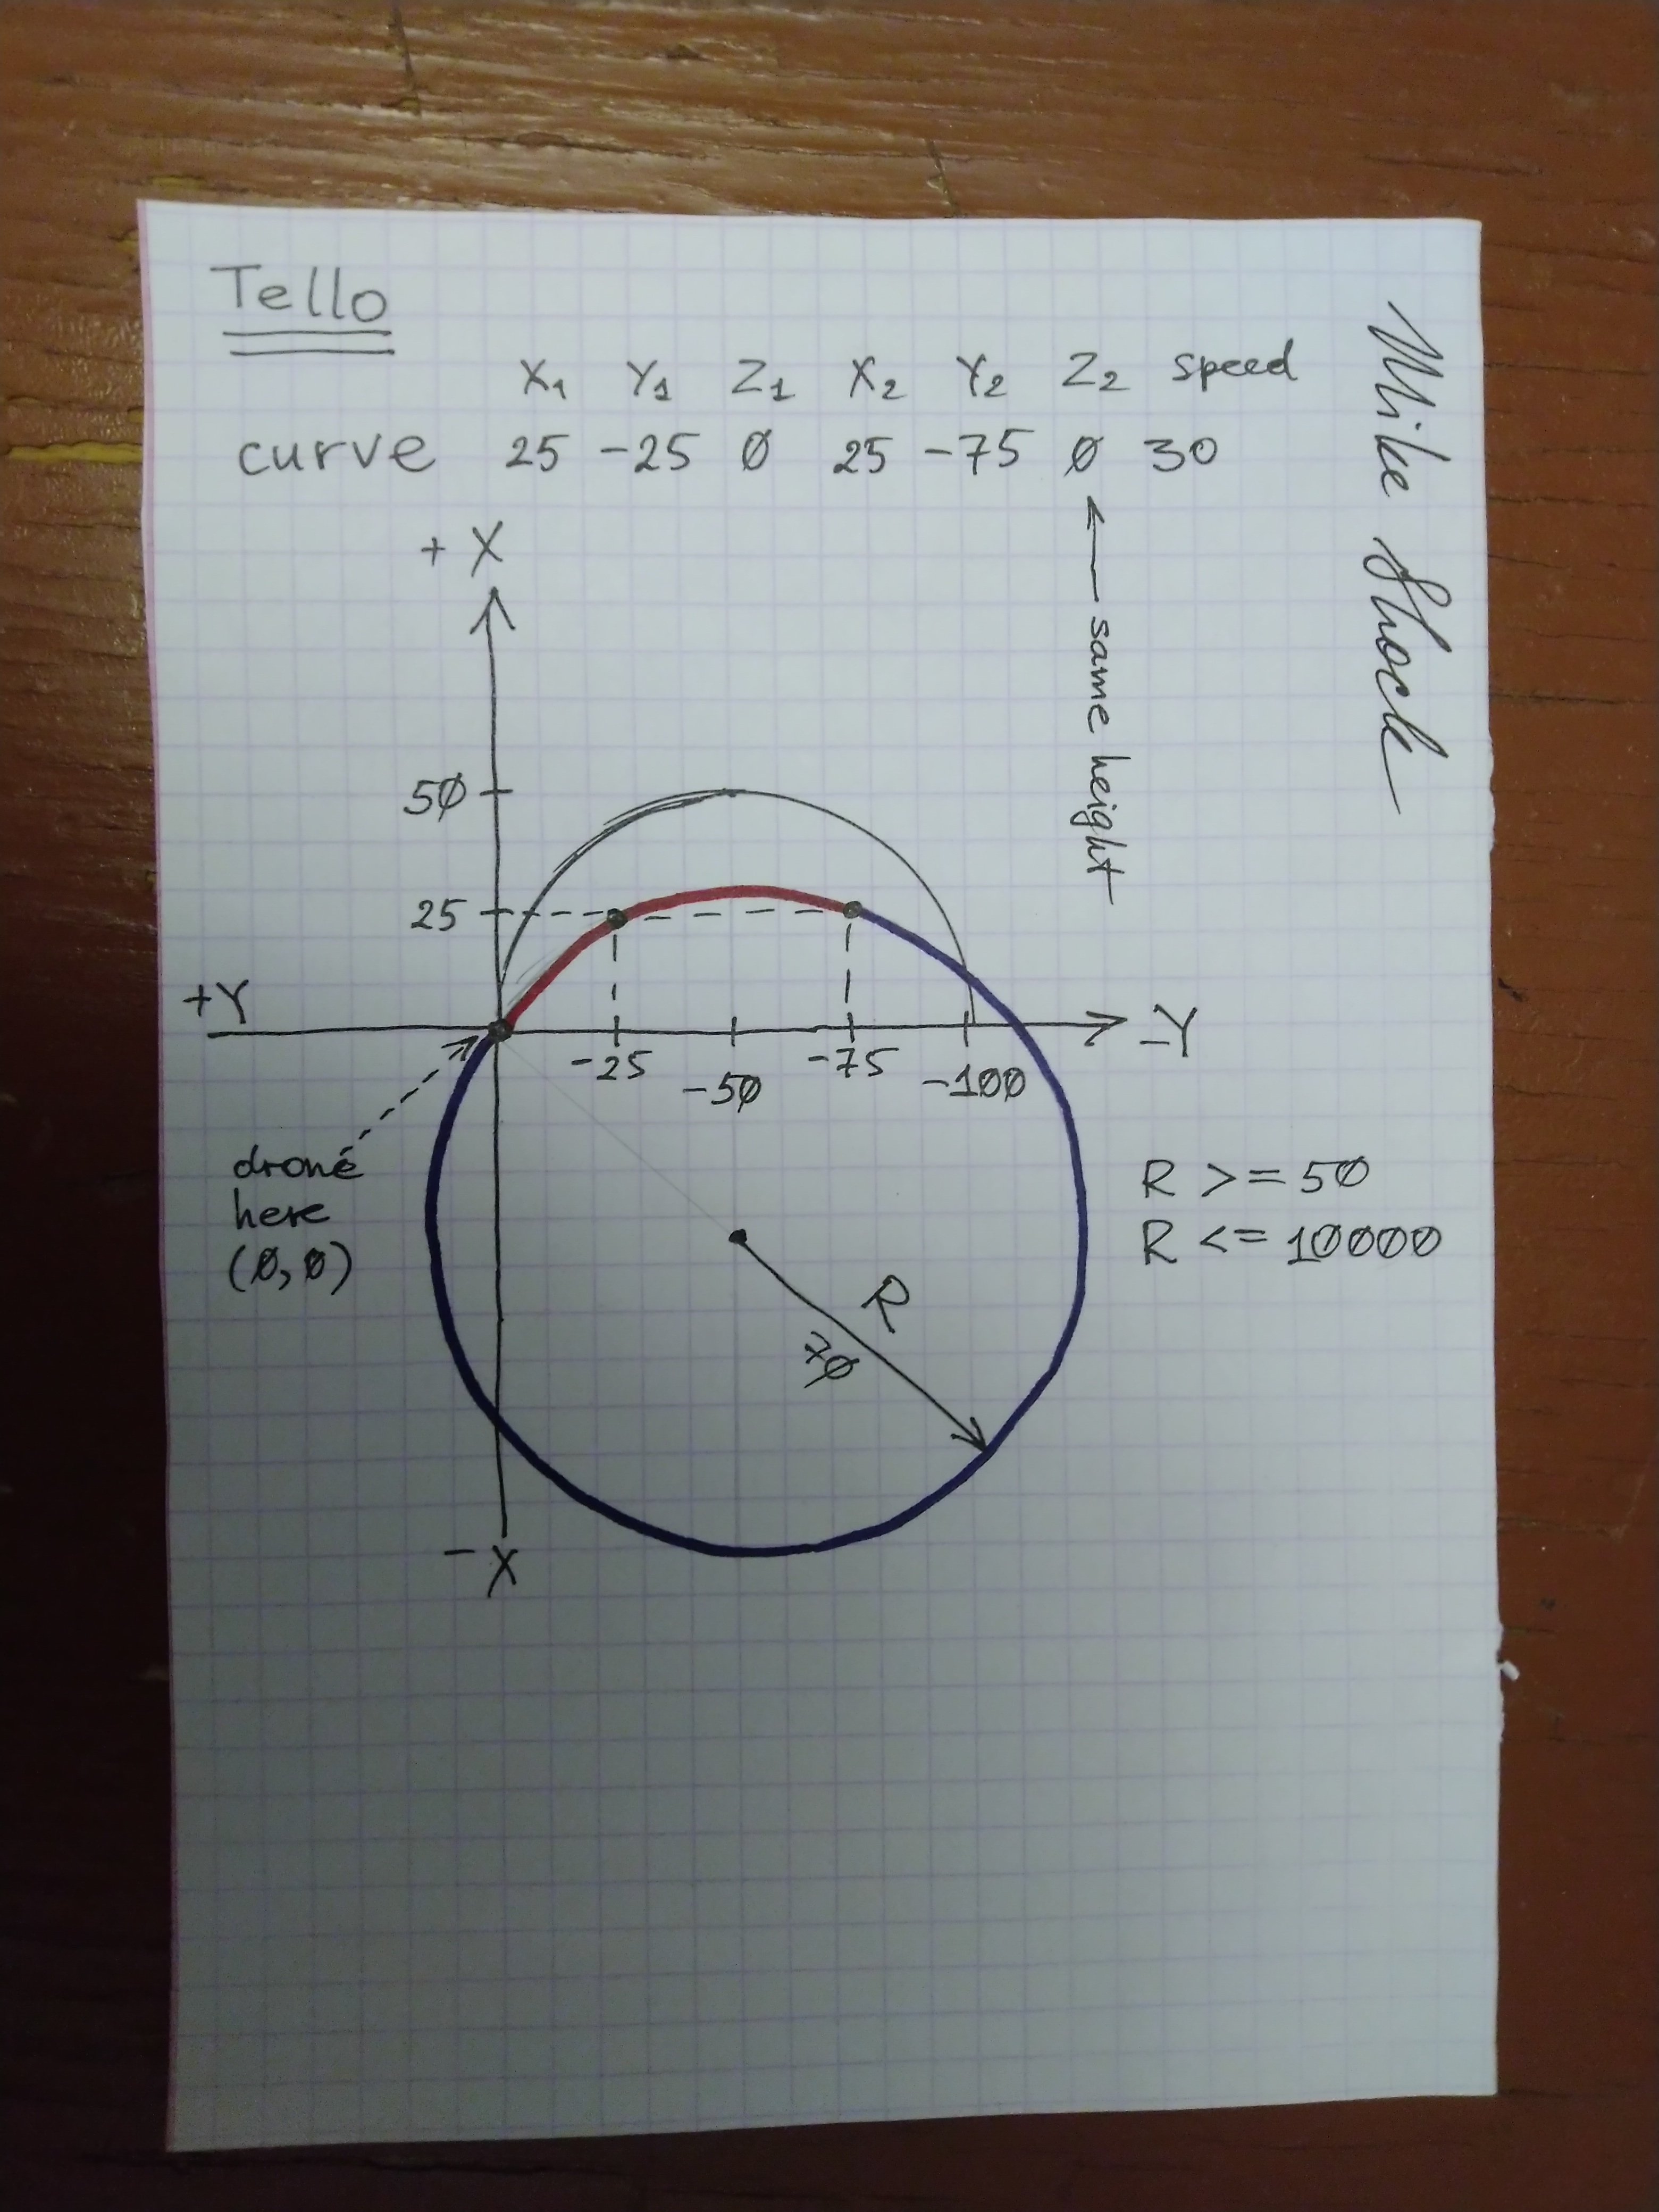 Tello
X₁ Y₁ Z₁ X₂ Y₂ Z₂ speed
curve 25 -25 0 25 -75 0 30
← same height
Mike Shock
+X
50
25
+Y
-Y
-25
-50
-75
-100
drone
here
(0,0)
R >= 50
R <= 10000
R
70
-X